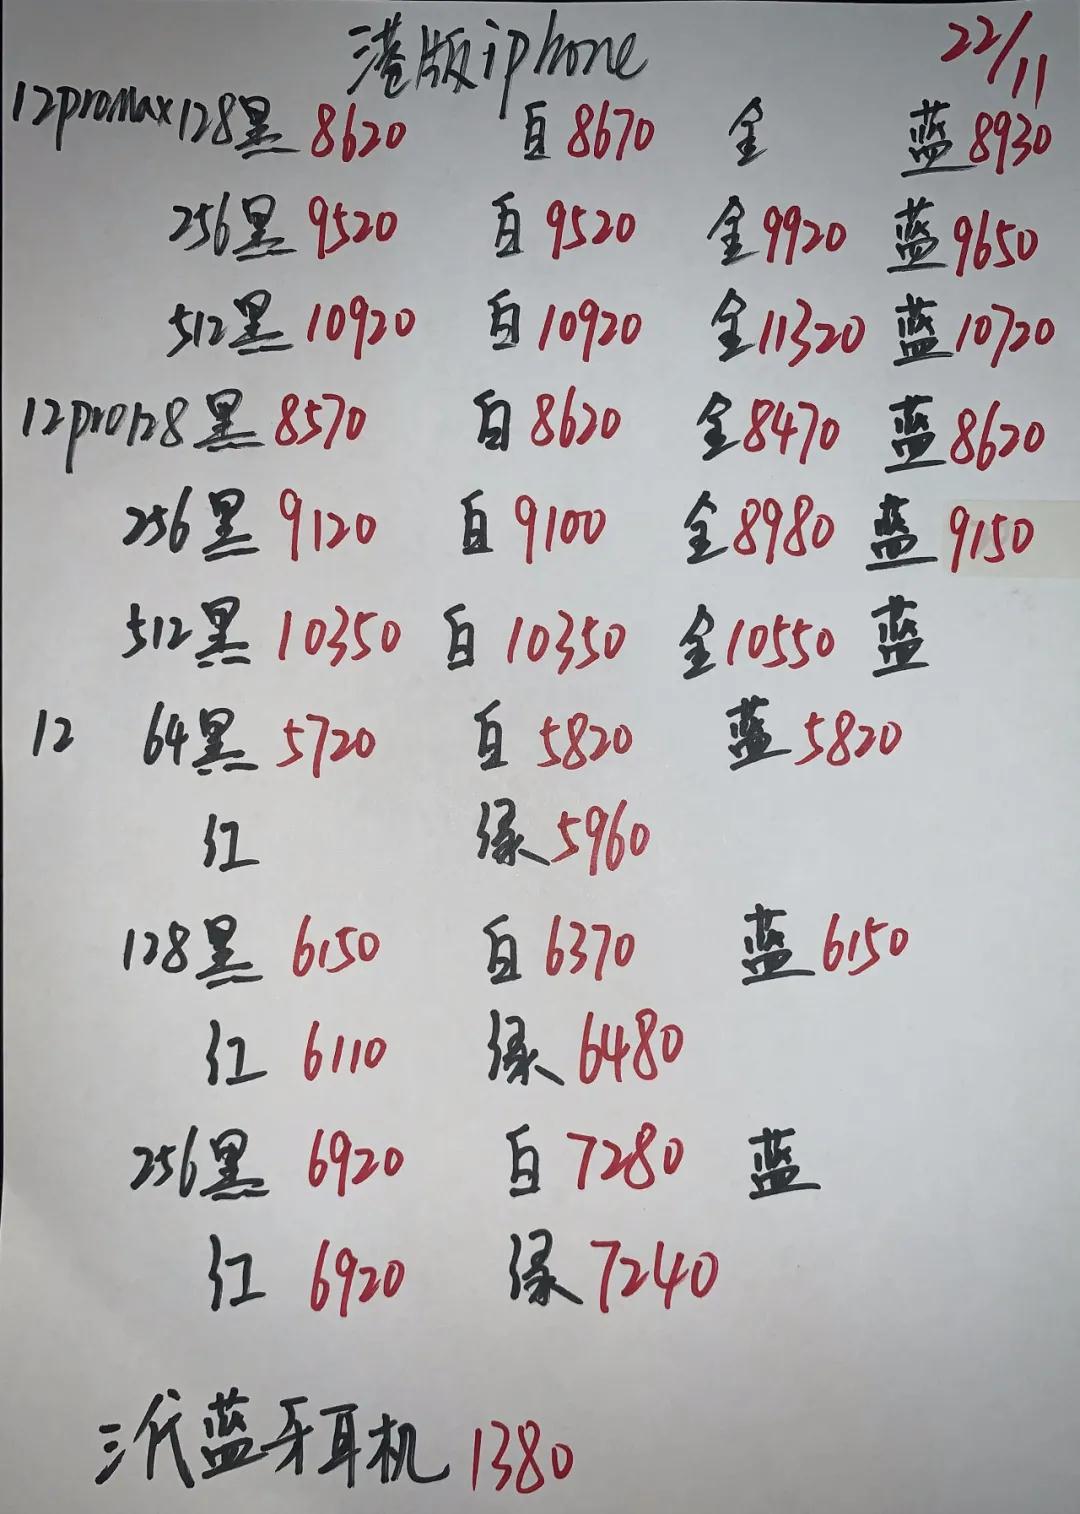 港版iphone 22/11
12proMax 128黑 8620 白 8670 金 蓝 8930
256黑 9520 白 9520 金 9920 蓝 9650
512黑 10920 白 10920 金 11320 蓝 10720
12pro128 黑 8570 白 8620 金 8470 蓝 8620
256黑 9120 白 9100 金 8980 蓝 9150
512黑 10350 白 10350 金 10550 蓝
12 64黑 5720 白 5820 蓝 5820
红 绿 5960
128黑 6150 白 6370 蓝 6150
红 6110 绿 6480
256黑 6920 白 7280 蓝
红 6920 绿 7240
三代蓝牙耳机 1380